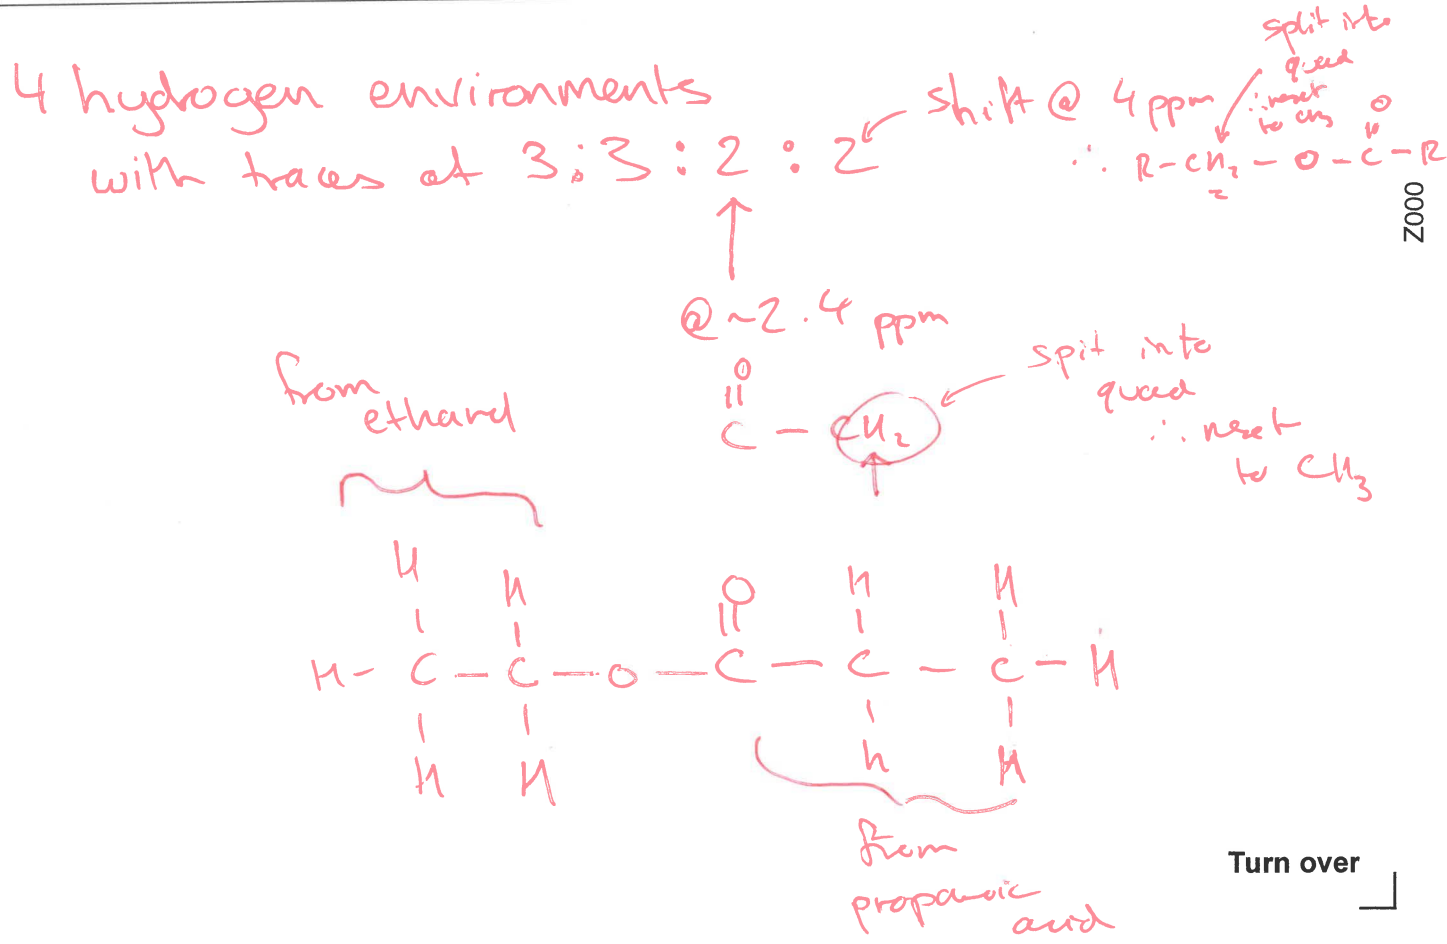 4 hydrogen environments
with traces at 3:3:2:2
shift @ 4ppm
split into
quad
∴ next
to CH3
O
||
∴ R-CH2-O-C-R
2
Z000
@ ~2.4 ppm
O
||
C - CH2
spit into
quad
∴ next
to CH3
from
ethanol
H H O H H
| | || | |
H-C-C-O-C-C-C-H
| | | |
H H h H
from
propanoic
acid
Turn over